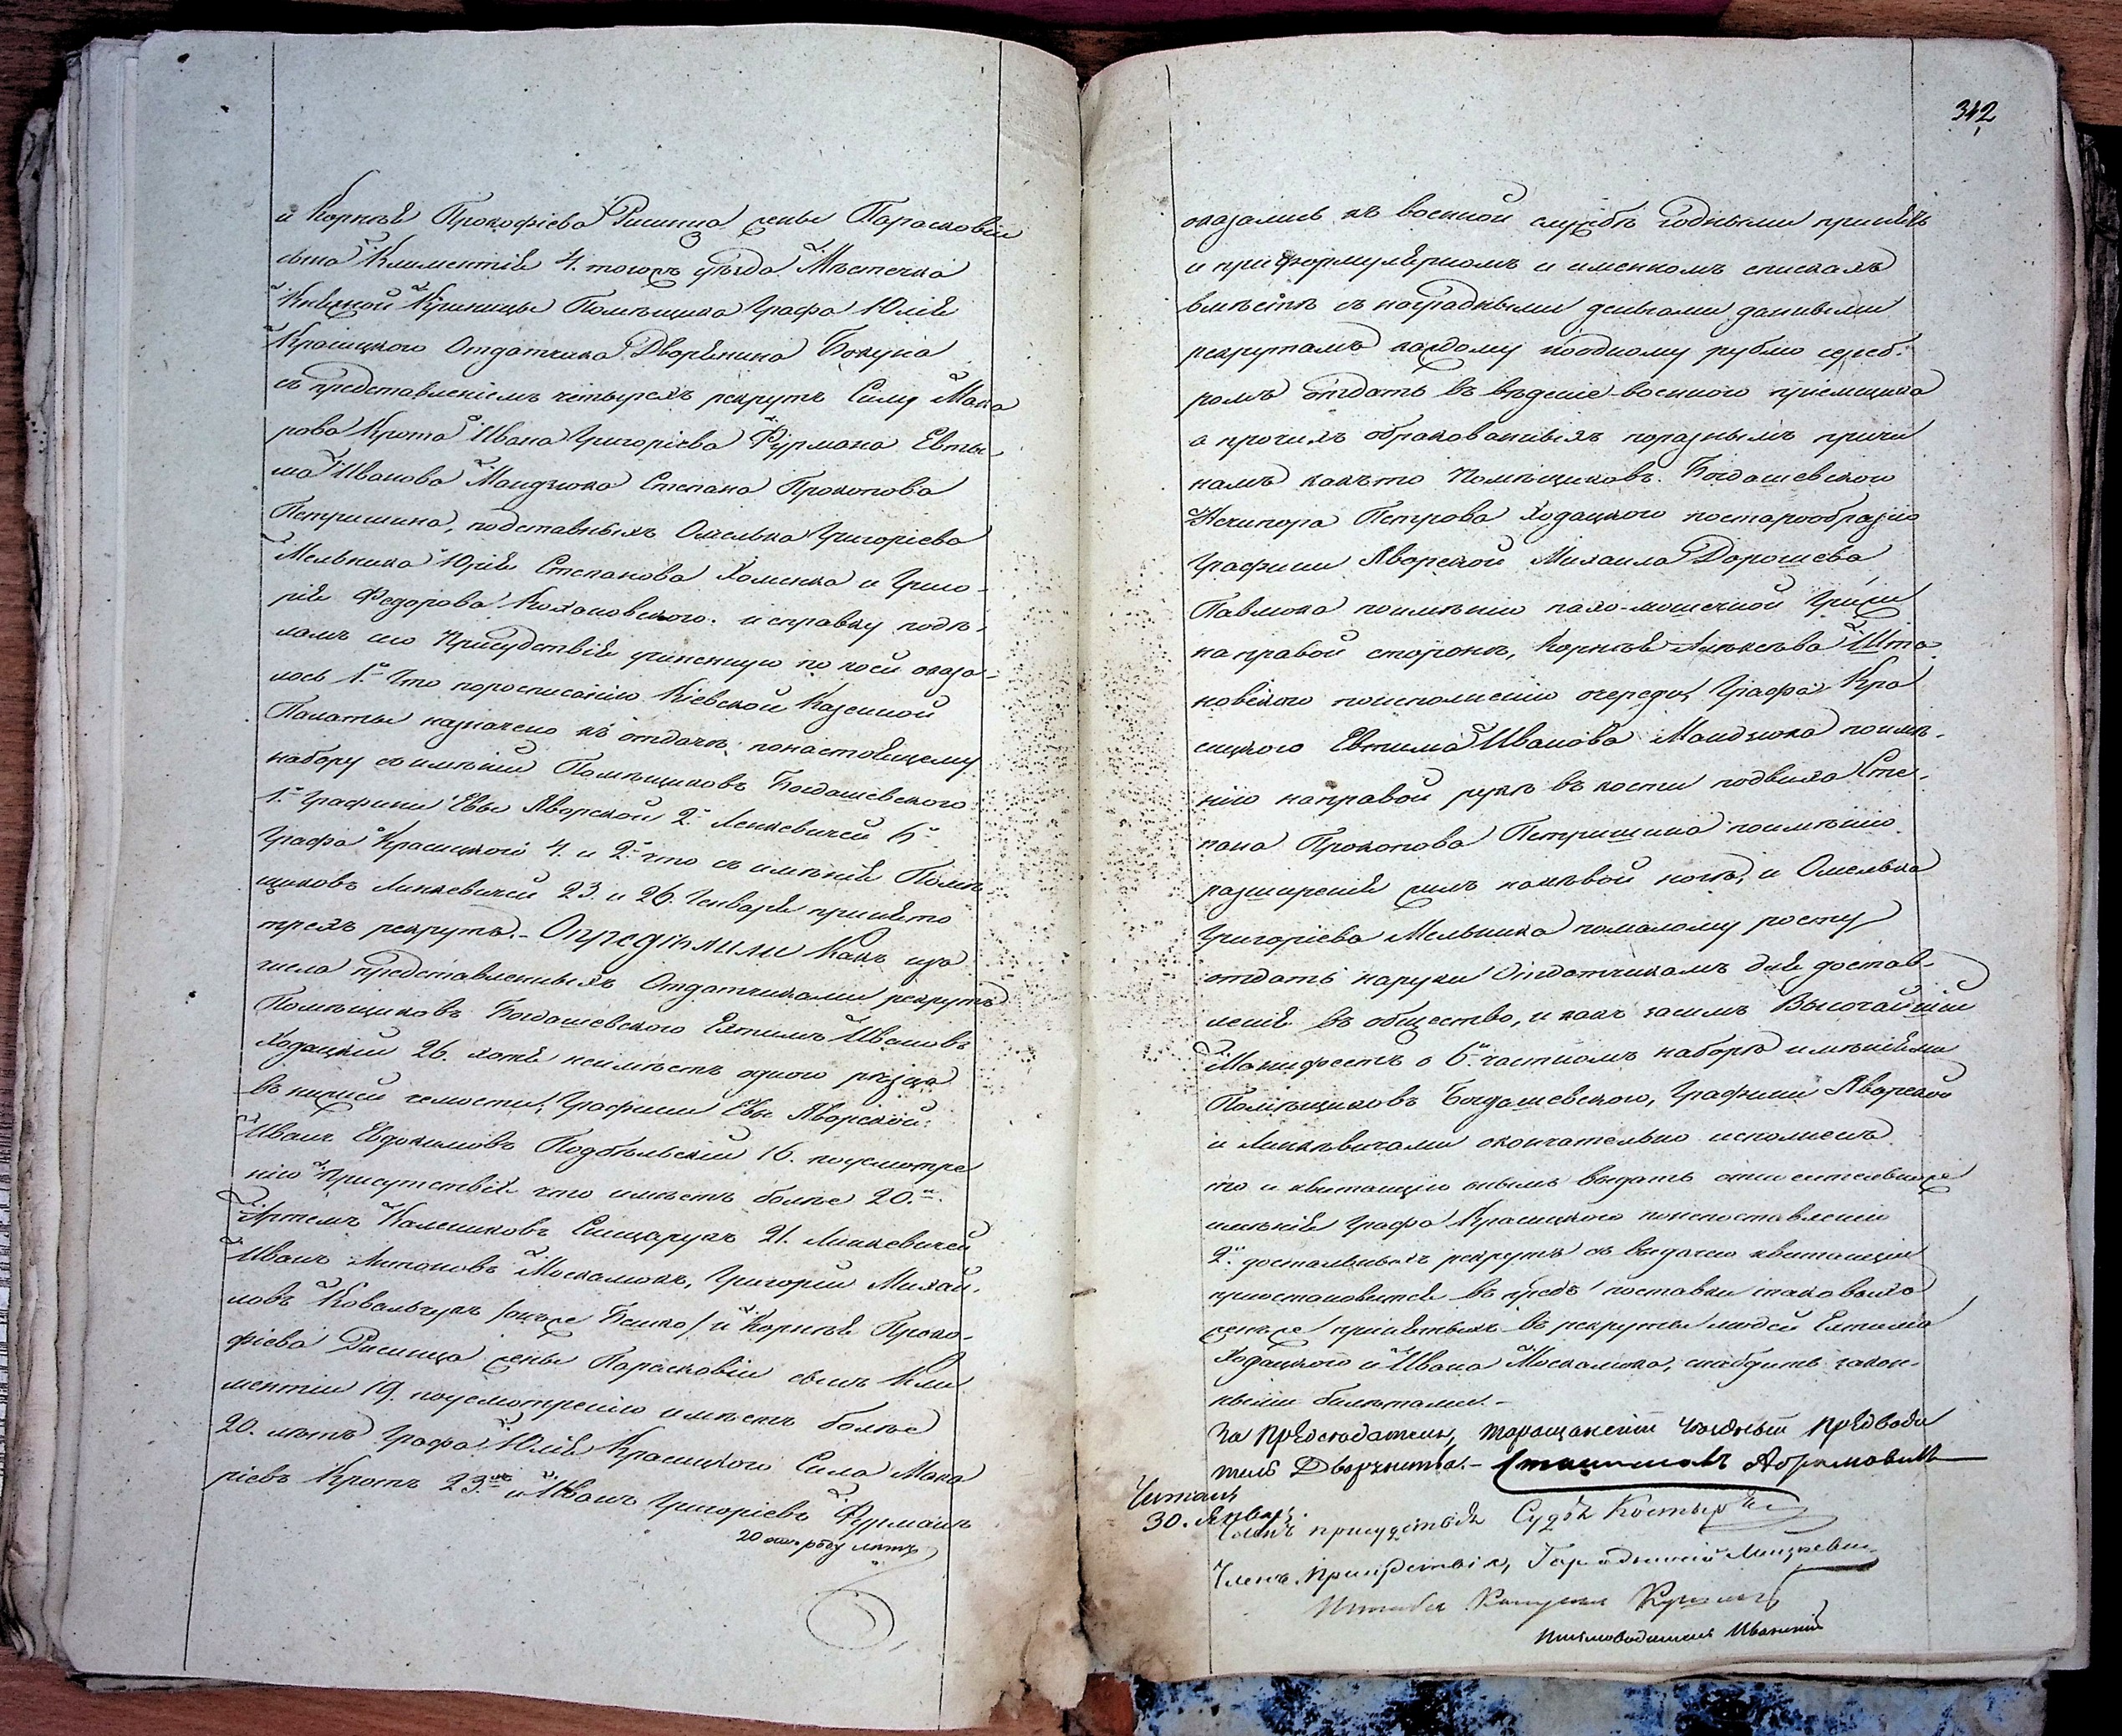 и Корнѣя Прокофіева Рисинца жены Парасковіи
сына Климентія 4. тогожъ уѣзда Мѣстечка
Княжой Криницы Помѣщика Графа Юлія
Красицкого Отдатчика Дворянина Бокуна
съ представленіемъ четырехъ рекрутъ Силу Мака
рова Крота Ивана Григоріева Фурмана Евты
ма Иванова Мандзюка Степана Прокопова
Петришина, подставныхъ Омелька Григоріева
Мельника Юрія Степанова Хоменка и Григо
рія Федорова Кохановского. и справку подѣ
ламъ сего Присудствія учиненную по коей оказа
лось 1.е Что поросписанію Кіевской Казенной
Палаты назначено къ отдачѣ понастоящему
набору съ имѣній Помѣщиковъ Богдашевского
1.го Графини Евы Яворской 2.хъ Линкевичей 6.
Графа Красицкого 4. и 2.е что съ имѣнія Помѣ
щиковъ Линкевичей 23. и 26. Генваря принято
трехъ рекрутъ. – Опредѣлили Какъ изъ
числа представленныхъ Отдатчиками рекрутъ
Помѣщиковъ Богдашевского Ектимъ Ивановъ
Ходацкій 26. хотя неимѣетъ одного рѣзца
въ нижней челюсти, Графини Евы Яворской:
Иванъ Евдокимовъ Подбѣльскій 16. поусмотре
нію Присутствія что имѣетъ болѣе 20.и
Артемъ Калениковъ Слищарукъ 21. Линкевичей
Иванъ Антоновъ Москалюкъ, Григорій Михай
ловъ Ковальчукъ /онъже Бешко/ и Корнѣя Проко
фіева Рисинца жены Парасковіи сынъ Кли
ментій 19. поусмотренію имѣетъ болѣе
20. лѣтъ Графа Юлія Красицкого Сила Мака
ріевъ Кротъ 23.хъ и Иванъ Григоріевъ Фурманъ
20 лѣтъ
342
оказались къ военной службѣ годными принять
и при формулярномъ и именномъ спискахъ
вмѣстѣ съ наградными деньгами данными
рекрутамъ каждому поодному рублю сереб
ромъ отдать въ вѣденіе военного пріемщика
а прочихъ обракованныхъ поразнымъ причи
намъ какъ то Помѣщиковъ Богдашевского
Нечипора Петрова Ходацкого постарообразію
Графини Яворской Михаила Дорошева
Павлюка поимѣнію пахо-мошечной Грыжи
направой сторонѣ, Корнѣя Алексѣева Шта
новского поисполненію очереди, Графа Кра
сицкого Евтима Иванова Мандзюка поимѣ
нію направой рукѣ въ кости подвиха Сте
пана Прокопова Петришина поимѣнію
разширенія жилъ налѣвой ногѣ, и Омелька
Григоріева Мельника помалому росту
отдать наруки Отдатчикамъ для достав
ленія въ общество, и какъ засимъ Высочайшій
Манифестъ о 6. частномъ наборѣ имѣніями
Помѣщиковъ Богдашевского, Графини Яворской
и Линкевичами окончательно исполненъ
то и квитанцію онымъ выдать относительноже
имѣнія Графа Красицкого понепоставленію
2.хъ достальныхъ рекрутъ съ выдачею квитанціи
приостановиться въ предь поставки таковыхъ
женъже принятыхъ въ рекруты людей Ектима
Ходацкого и Ивана Москалюка, снабдить закон
ными билетами. –
За Предсѣдателя, Таращанскій Уѣздный Предводи
тель Дворянства. – Станиславъ Абрамовичъ
Читалъ
30. Января.
Членъ присудствія Судья
Членъ Присудствія, Городничій
Письмоводитель Иваницкій